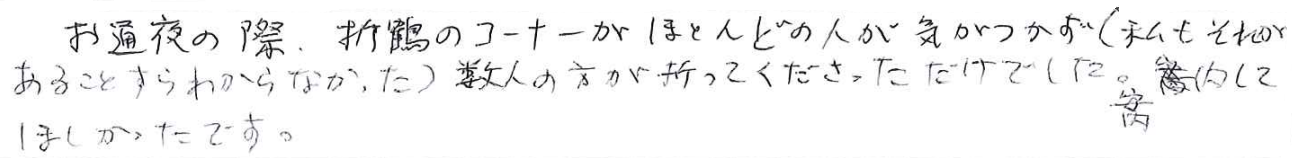 お通夜の際、折鶴のコーナーがほとんどの人が気がつかず(私もそれが
あることすらわからなかった)数人の方が折ってくださっただけでした。案内して
ほしかったです。